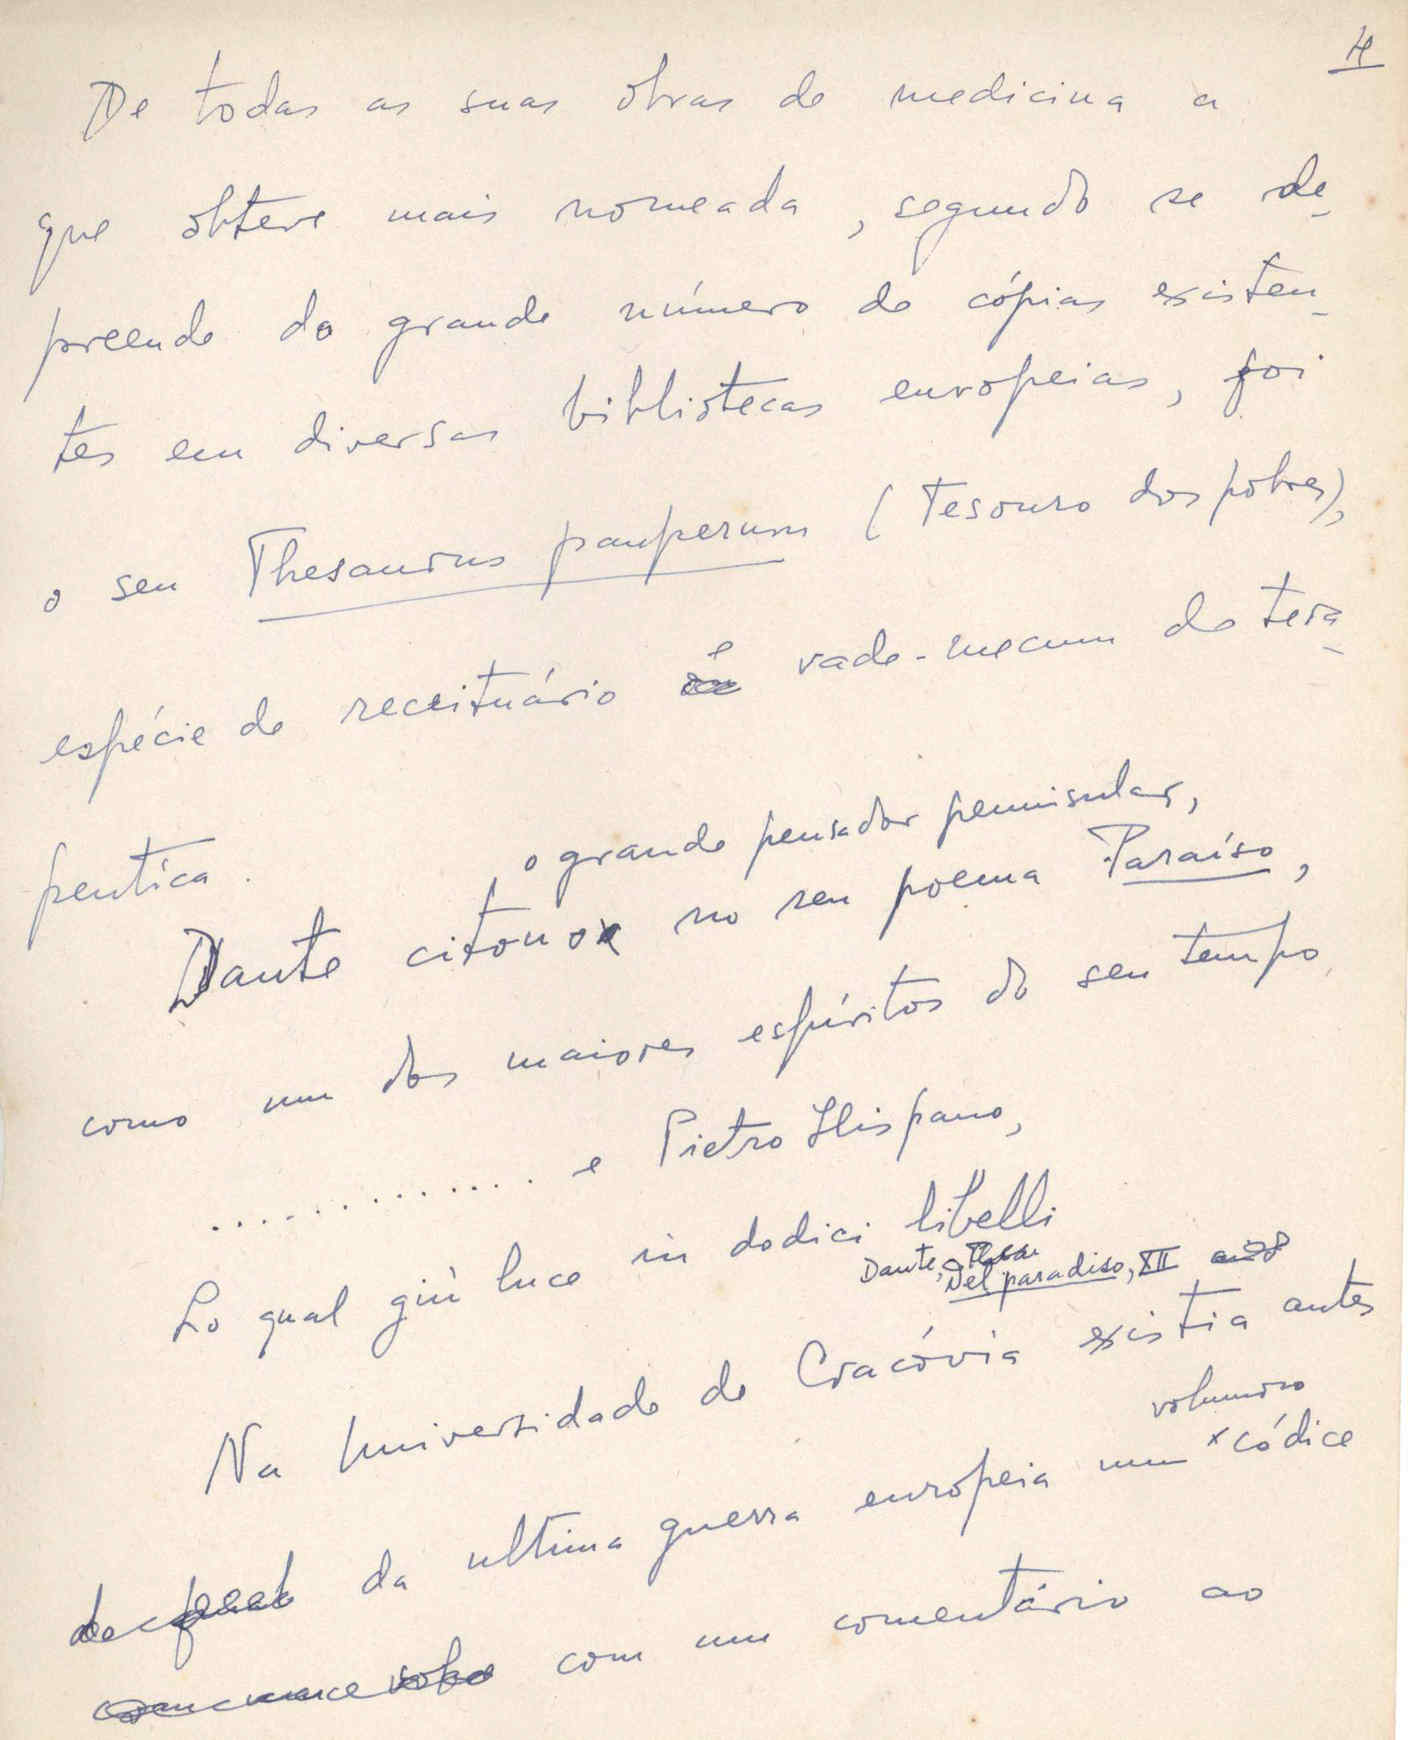 4
De todas as suas obras de medicina a
que obteve mais nomeada, segundo se de-
preende do grande número de cópias existen-
tes em diversas bibliotecas europeias, foi
o seu Thesaurus pauperum (Tesouro dos pobres),
espécie de receituário e vade-mecum de tera-
peutica.
, o grande pensador peninsular,
Dante citou no seu poema Paraíso,
como um dos maiores espíritos do seu tempo
.............. e Pietro Hispano,
Lo qual giù luce in dodici libelli
Dante, Del paradiso, XII
Na Universidade de Cracóvia existia antes
volumoso
da ultima guerra europeia um x códice
com um comentário ao